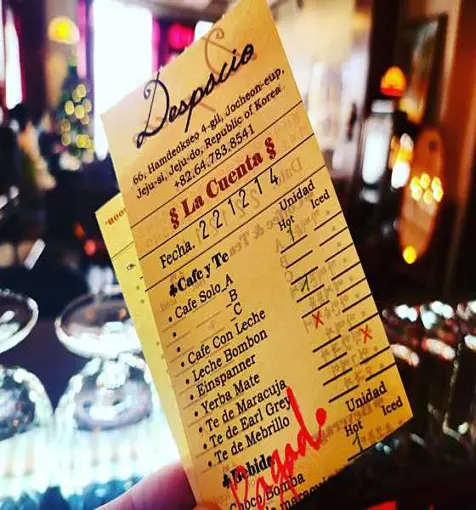 Despacio
66, Hamdeokseo 4-gil, Jocheon-eup,
Jeju-si, Jeju-do, Republic of Korea
+82.64.783.8541
§ La Cuenta §
Fecha. 221214
Unidad
♣Cafe y Te Hot Iced
• Cafe Solo A 1
B
C
• Cafe Con Leche 1
• Leche Bombon
• Einspanner x
• Yerba Mate x
• Te de Maracuja
• Te de Earl Grey
• Te de Mebrillo
Unidad
♣Bebida Hot Iced
Choco Bomba 1
Pagad